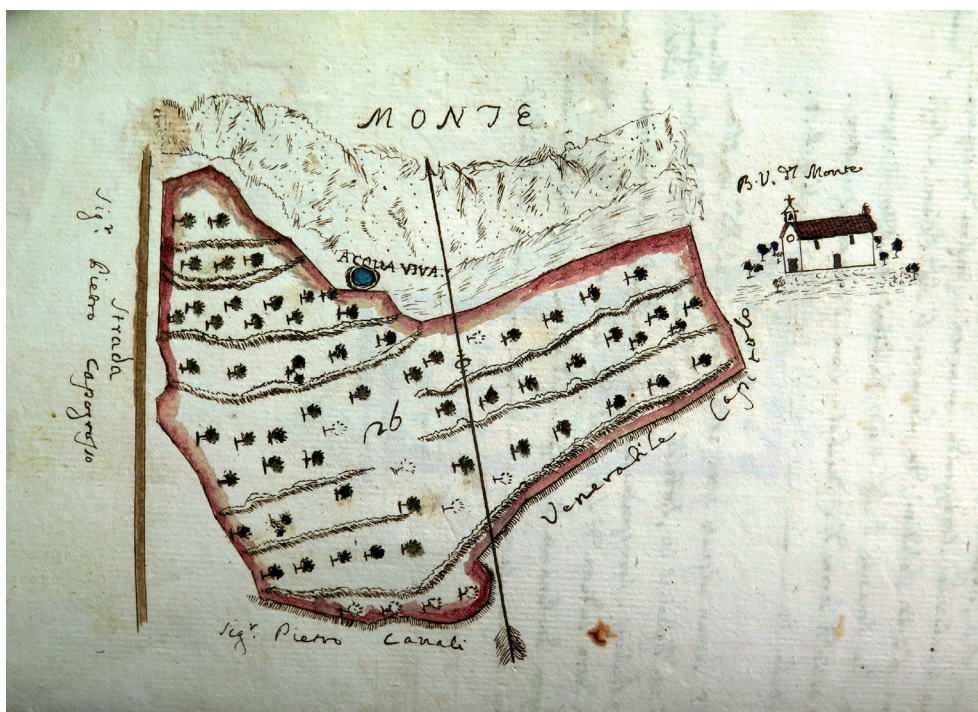 MONTE
B. V. Dl Monte
ACQUA VIVA
Strada
Sigr. Pietro Capogrosso
26
Venerabile Capitolo
Sigr. Pietro Canali